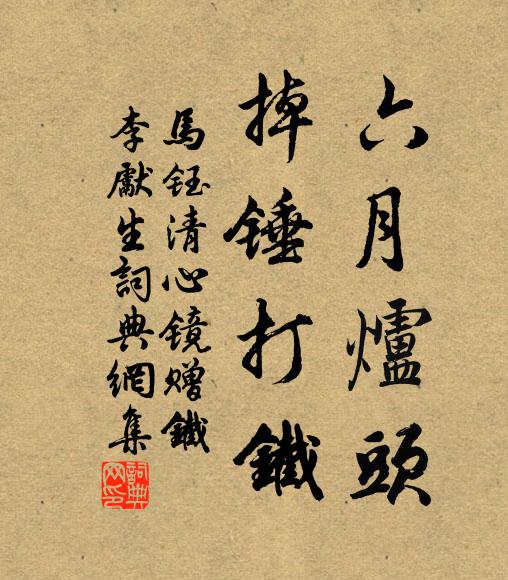 六月爐頭
掉錘打鐵
馬鈺清心鏡贈鐵
李獻生詞典網集
詞典網印